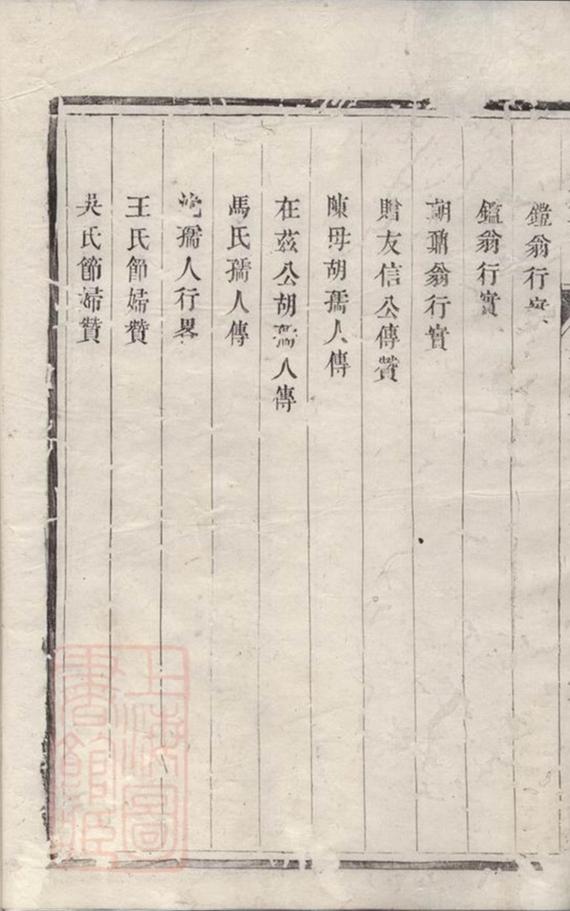 鐙翁行實
鑑翁行實
朝鼐翁行實
贈友信公傳贊
陳母胡孺人傳
在茲公胡孺人傳
馬氏孺人傳
孺人行畧
王氏節婦贊
吳氏節婦贊
上海圖書館藏